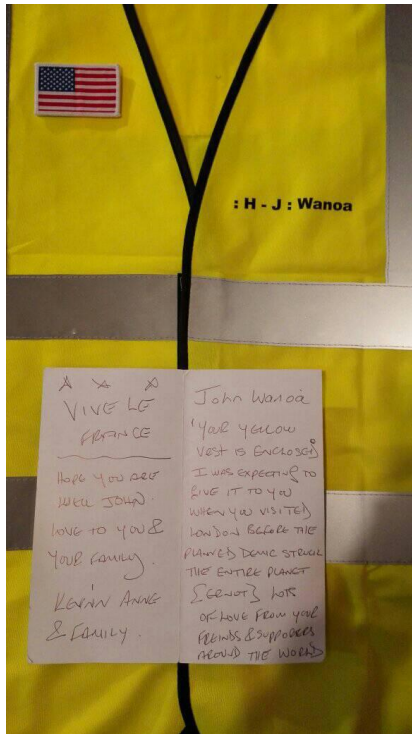 : H - J : Wanoa
VIVE LE
FRANCE
HOPE YOU ARE
WELL JOHN.
LOVE TO YOU &
YOUR FAMILY.
KEVIN ANNE
& FAMILY.
John Wanoa
'YOUR YELLOW
VEST IS ENCLOSED
I WAS EXPECTING TO
GIVE IT TO YOU
WHEN YOU VISITED
LONDON BEFORE THE
PLANNED DEMIC STRUCK
THE ENTIRE PLANET
LOTS
OF LOVE FROM YOUR
FREINDS & SUPPORERS
AROUND THE WORLD